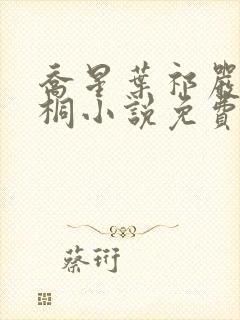 喬星葉祁嚴
桐小說免費
蔡衍